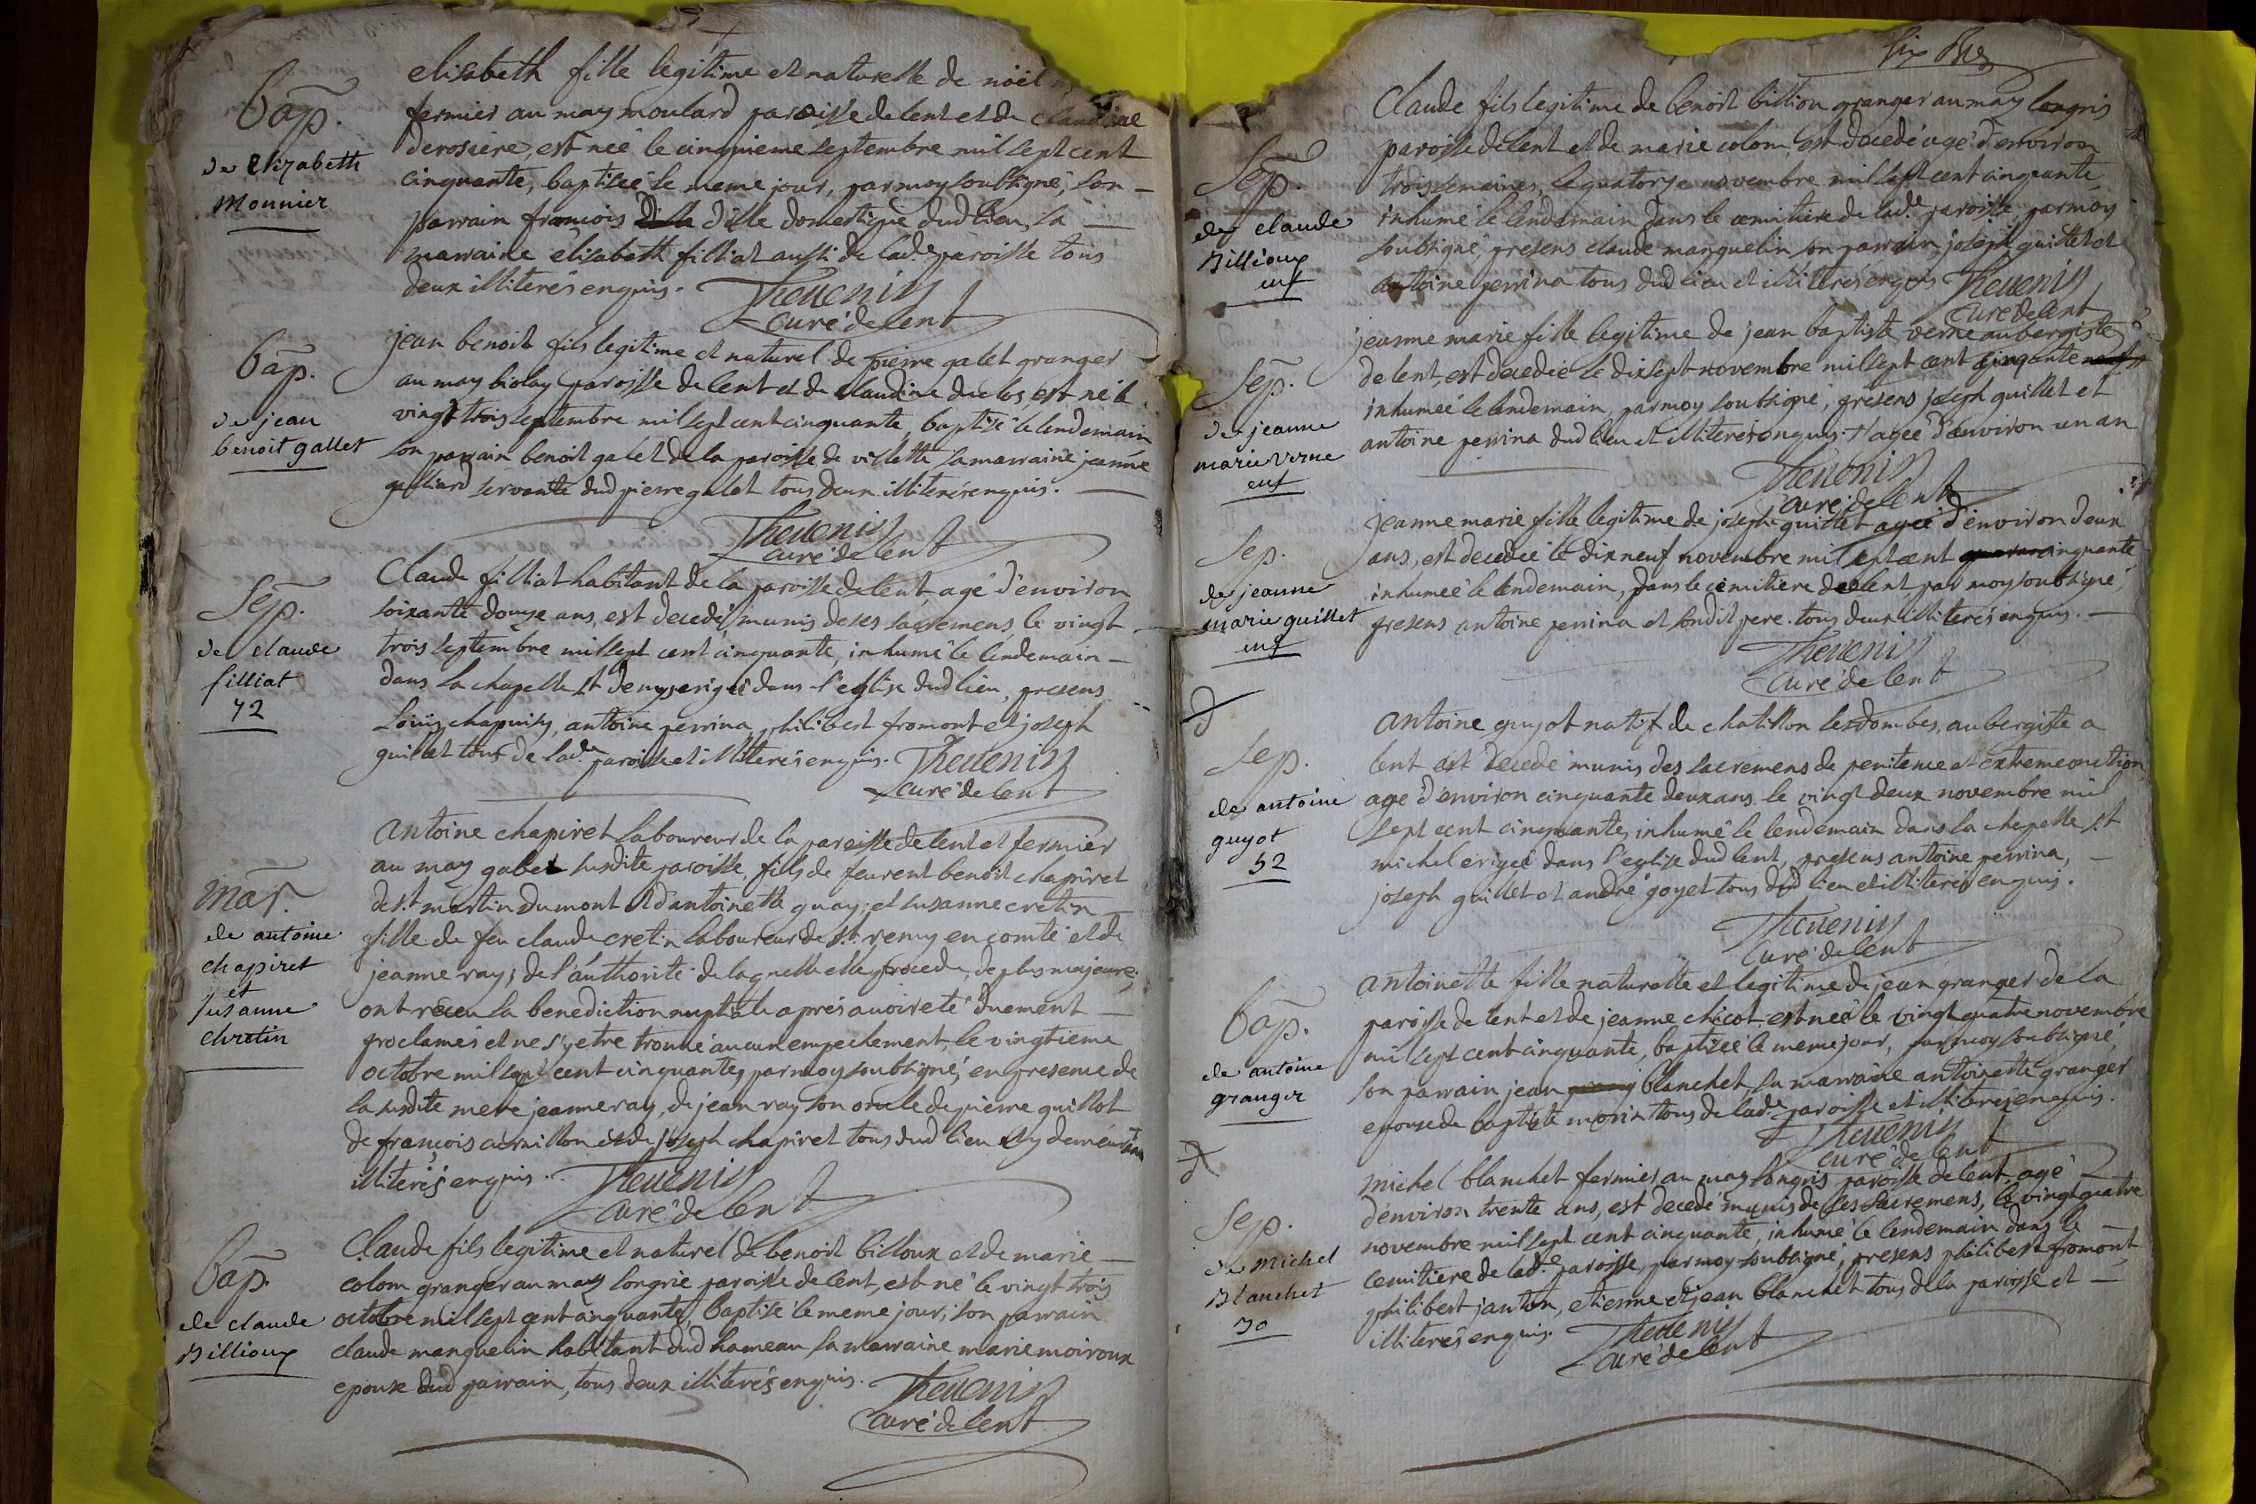 Bap.
de Elizabeth
Monnier
elisabeth fille legitime et naturelle de noël
fermier au may moulard paroisse de lent et de claudine
derosiere, est née le cinquieme septembre mil sept cent
cinquante, baptisée le meme jour, par moy soubsigné, son
parrain francois dille domestique dud lieu, la
marraine elisabeth filliat aussi de lad.e paroisse tous
deux illiterés enquis.
Theuenin
curé de lent
Bap.
de jean
benoit gallet
jean benoit fils legitime et naturel de pierre galet granger
au may biolay paroisse de lent et de claudine duclos, est né le
vingt trois septembre mil sept cent cinquante, baptisé le lendemain
son parrain benoit galet de la paroisse de villette sa marraine jeanne
galliard servante dud pierre galet tous deux illiterés enquis.
Theuenin
curé de lent
Sep.
de claude
filliat
72
Claude filliat habitant de la paroisse de lent, agé d'environ
soixante douze ans, est decedé, munis de ses sacremens, le vingt
trois septembre mil sept cent cinquante, inhumé le lendemain
dans la chapelle st denys erigée dans l'eglise dud lieu, presens
Louis chapuisy, antoine perrina, philibert fromont et joseph
guillet tous de lad.e paroisse et illiterés enquis.
Theuenin
curé de lent
Mar.
de antoine
chapiret
et
susanne
chretin
antoine chapiret laboureur de la paroisse de lent et fermier
au may gabet susdite paroisse, fils de feu rent benoit chapiret
de st martin du mont et d'antoinette guay; et susanne cretin
fille de feu claude cretin laboureur de st remy en comté et de
jeanne ray; de l'authorité de laquelle elle procede, de plus majeure;
ont receu la benediction nuptiale aprés avoir eté duement
proclamés et ne s'y etre trouvé aucun empechement, le vingtieme
octobre mil sept cent cinquante, par moy soubsigné, en presence de
la susdite mere jeanne ray, de jean ray son oncle de pierre guillot
de françois cornillon et de joseph chapiret tous dud lieu et y demeurant
illiterés enquis.
Theuenin
curé de lent
Bap.
de claude
Billioux
Claude fils legitime et naturel de benoit billoux et de marie
colom granger au may longrie paroisse de lent, est né le vingt trois
octobre mil sept cent cinquante, baptisé le meme jour, son parrain
claude manguelin habitant dud hameau sa marraine marie moiroux
epouse dud parrain, tous deux illiterés enquis.
Theuenin
curé de lent
Sep.
de claude
Billioux
enf
Claude fils legitime de benoit billion granger au may longris
paroisse de lent et de marie colom, est decedé agé d'environ
trois semaines, le quatorze novembre mil sept cent cinquante,
inhumé le lendemain dans le cemitiere de lad.e paroisse par moy
soubsigné, presens claude manguelin son parrain, joseph guillet et
antoine perrina tous dud lieu et illiterés enquis
Theuenin
curé de lent
Sep.
de jeanne
marie verne
enf
jeanne marie fille legitime de jean baptiste verne aubergiste
de lent, est decedée le dix sept novembre mil sept cent cinquante
inhumée le lendemain, par moy soubsigné, presens joseph guillet et
antoine perrina dud lieu et illiterés enquis. agée d'environ un an
Theuenin
curé de lent
Sep.
de jeanne
marie guillet
enf
jeanne marie fille legitime de joseph guillet agée d'environ deux
ans, est decedée le dix neuf novembre mil sept cent cinquante
inhumée le lendemain, dans le cemitiere de lent, par moy soubsigné,
presens antoine perrina et sondit pere. tous deux illiterés enquis.
Theuenin
curé de lent
Sep.
de antoine
guyot
52
antoine guyot natif de chatillon lesdombes, aubergiste a
lent est decedé munis des sacremens de penitence et extremeonction,
agé d'environ cinquante deux ans le vingt deux novembre mil
sept cent cinquante, inhumé le lendemain dans la chapelle st
michel erigée dans l'eglise dud lent, presens antoine perrina,
joseph guillet et andré goyet tous dud lieu et illiterés enquis.
Theuenin
curé de lent
Bap.
de antoine
granger
antoinette fille naturelle et legitime de jean granger de la
paroisse de lent et de jeanne chicot est née le vingt quatre novembre
mil sept cent cinquante, baptisée le meme jour, par moy soubsigné,
son parrain jean blanchet, sa marraine antoinette granger
epouse de baptiste morin tous de lad.e paroisse et illiterés enquis.
Theuenin
curé de lent
Sep.
de Michel
Blanchet
30
michel blanchet fermier au may longris paroisse de lent, agé
d'environ trente ans, est decedé munis de ses sacremens, le vingt quatre
novembre mil sept cent cinquante, inhumé le lendemain dans le
cemitiere de lad.e paroisse, par moy soubsigné, presens philibert fromont,
philibert janton, etienne et jean blanchet tous de la paroisse et
illiterés enquis.
Theuenin
curé de lent